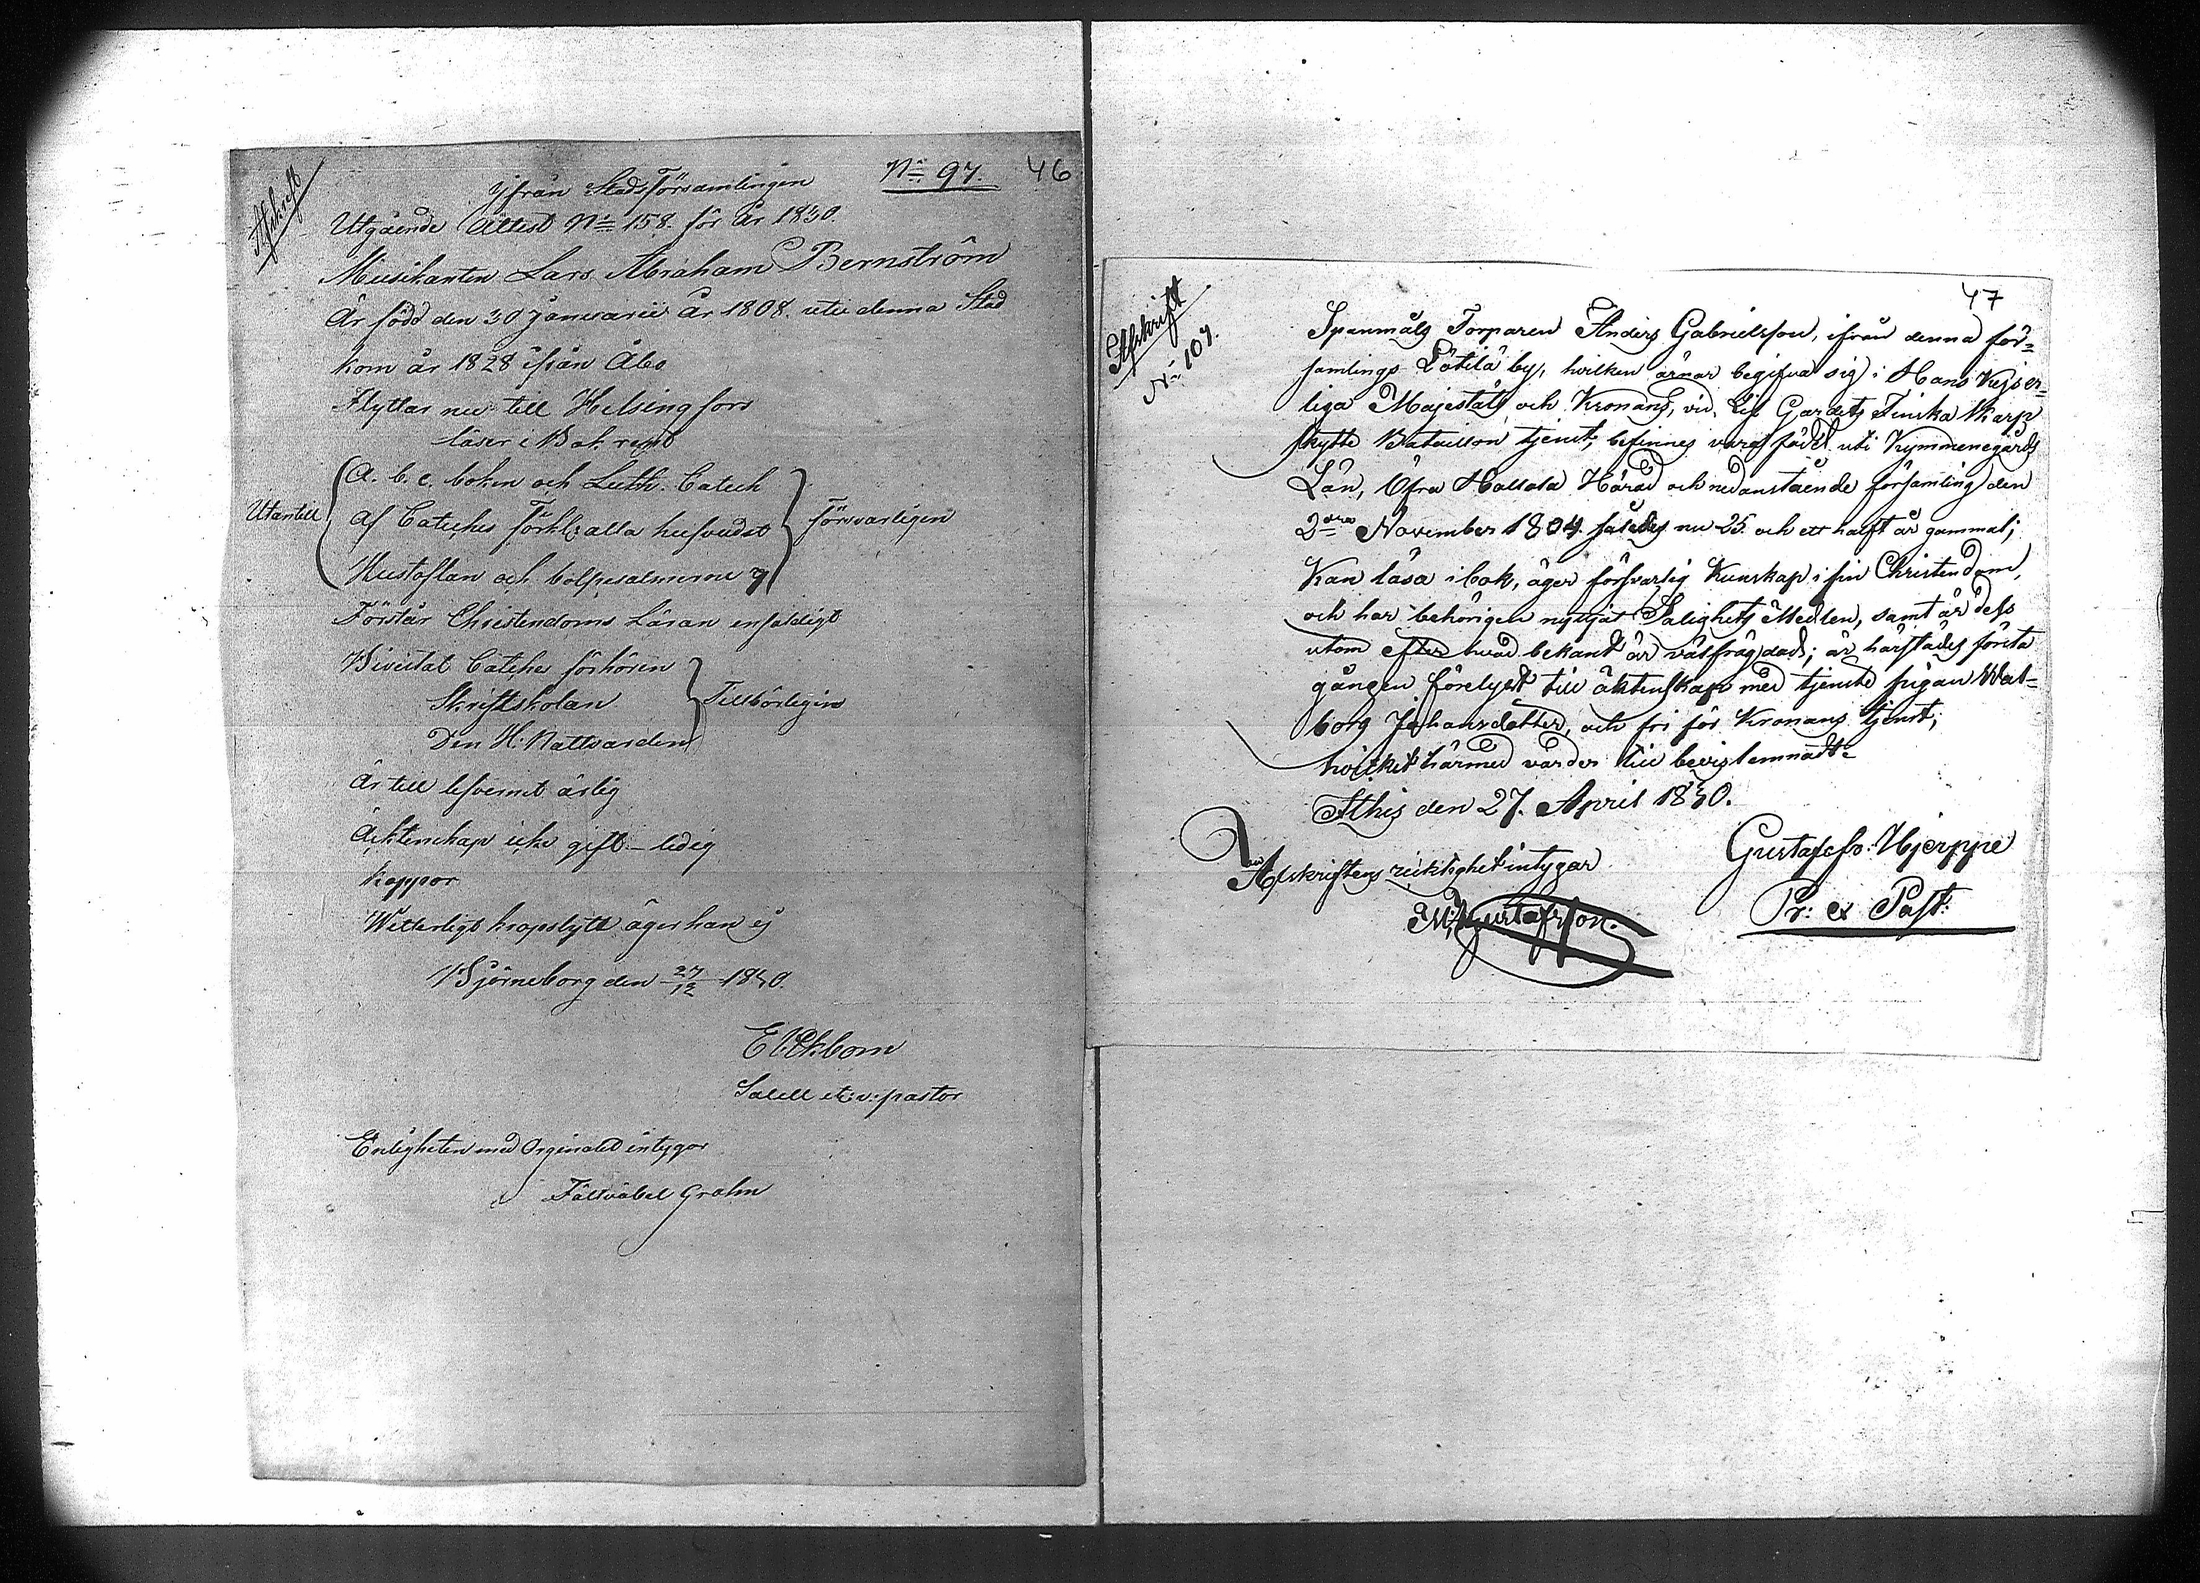 Afskrift
N:o 97. 46
Ifrån Stadsförsamlingen
Utgående Attest N:o 158. för år 1830.
Musikanten Lars Abraham Bernström
Är född den 30 Januarii år 1808. uti denna Stad
kom år 1828 ifrån Åbo
Flyttar nu till Helsingfors
läser i Bok
A. b. c. boken och Luth. Catech
Utantill af Cateches Förkl: alla hufvudst försvarligen
Hustaflan och botpsalmerne
Förstår Christendoms Läran enfaldigt
Bivistat Cateches förhören
Skriftskolan Tillbörligen
Den H: Nattvarden
Är till lefvernet ärlig
Äcktenskap icke gift – ledig
koppor
Witterligt kropslytt äger han ej
Björneborg den 27/12 1830.
E Ekbom
Sacell et v: pastor
Enligheten med Orginalet intygar
Fältväbel Grahn
47
Afskrift
N:o 107.
Spanmåls Torparen Anders Gabrielsson, ifrån denna för=
samlings Lötilä by, hvilken ärnar begifva sig i Hans Kejser=
liga Majestäts och Kronans, vid Lif Gardets Finska Skarp
skytte Bataillon tjenst, befinnes vara född uti Kymmenegårds
Län, Öfra Hollola Härad och nedanstående församling den
2dra November 1804. således nu 25. och ett halft år gammal;
Kan läsa i bok, äger försvarlig Kunskap i sin Christendom,
och har behörigen nyttjat Salighets Medlen, samt är dess
utom efter hvad bekant är välfrägdad; är härstädes första
gången förelyst till äktenskap med tjenste pigan Wal=
borg Johansdotter, och fri för Kronans tjenst;
hvilket härmed varder till bevis lemnadt:
Ithis den 27. April 1830.
Gustaf Hjerppe
Pr: & Past:
Afskriftens ricktighet intygar
M, Gustafsson.